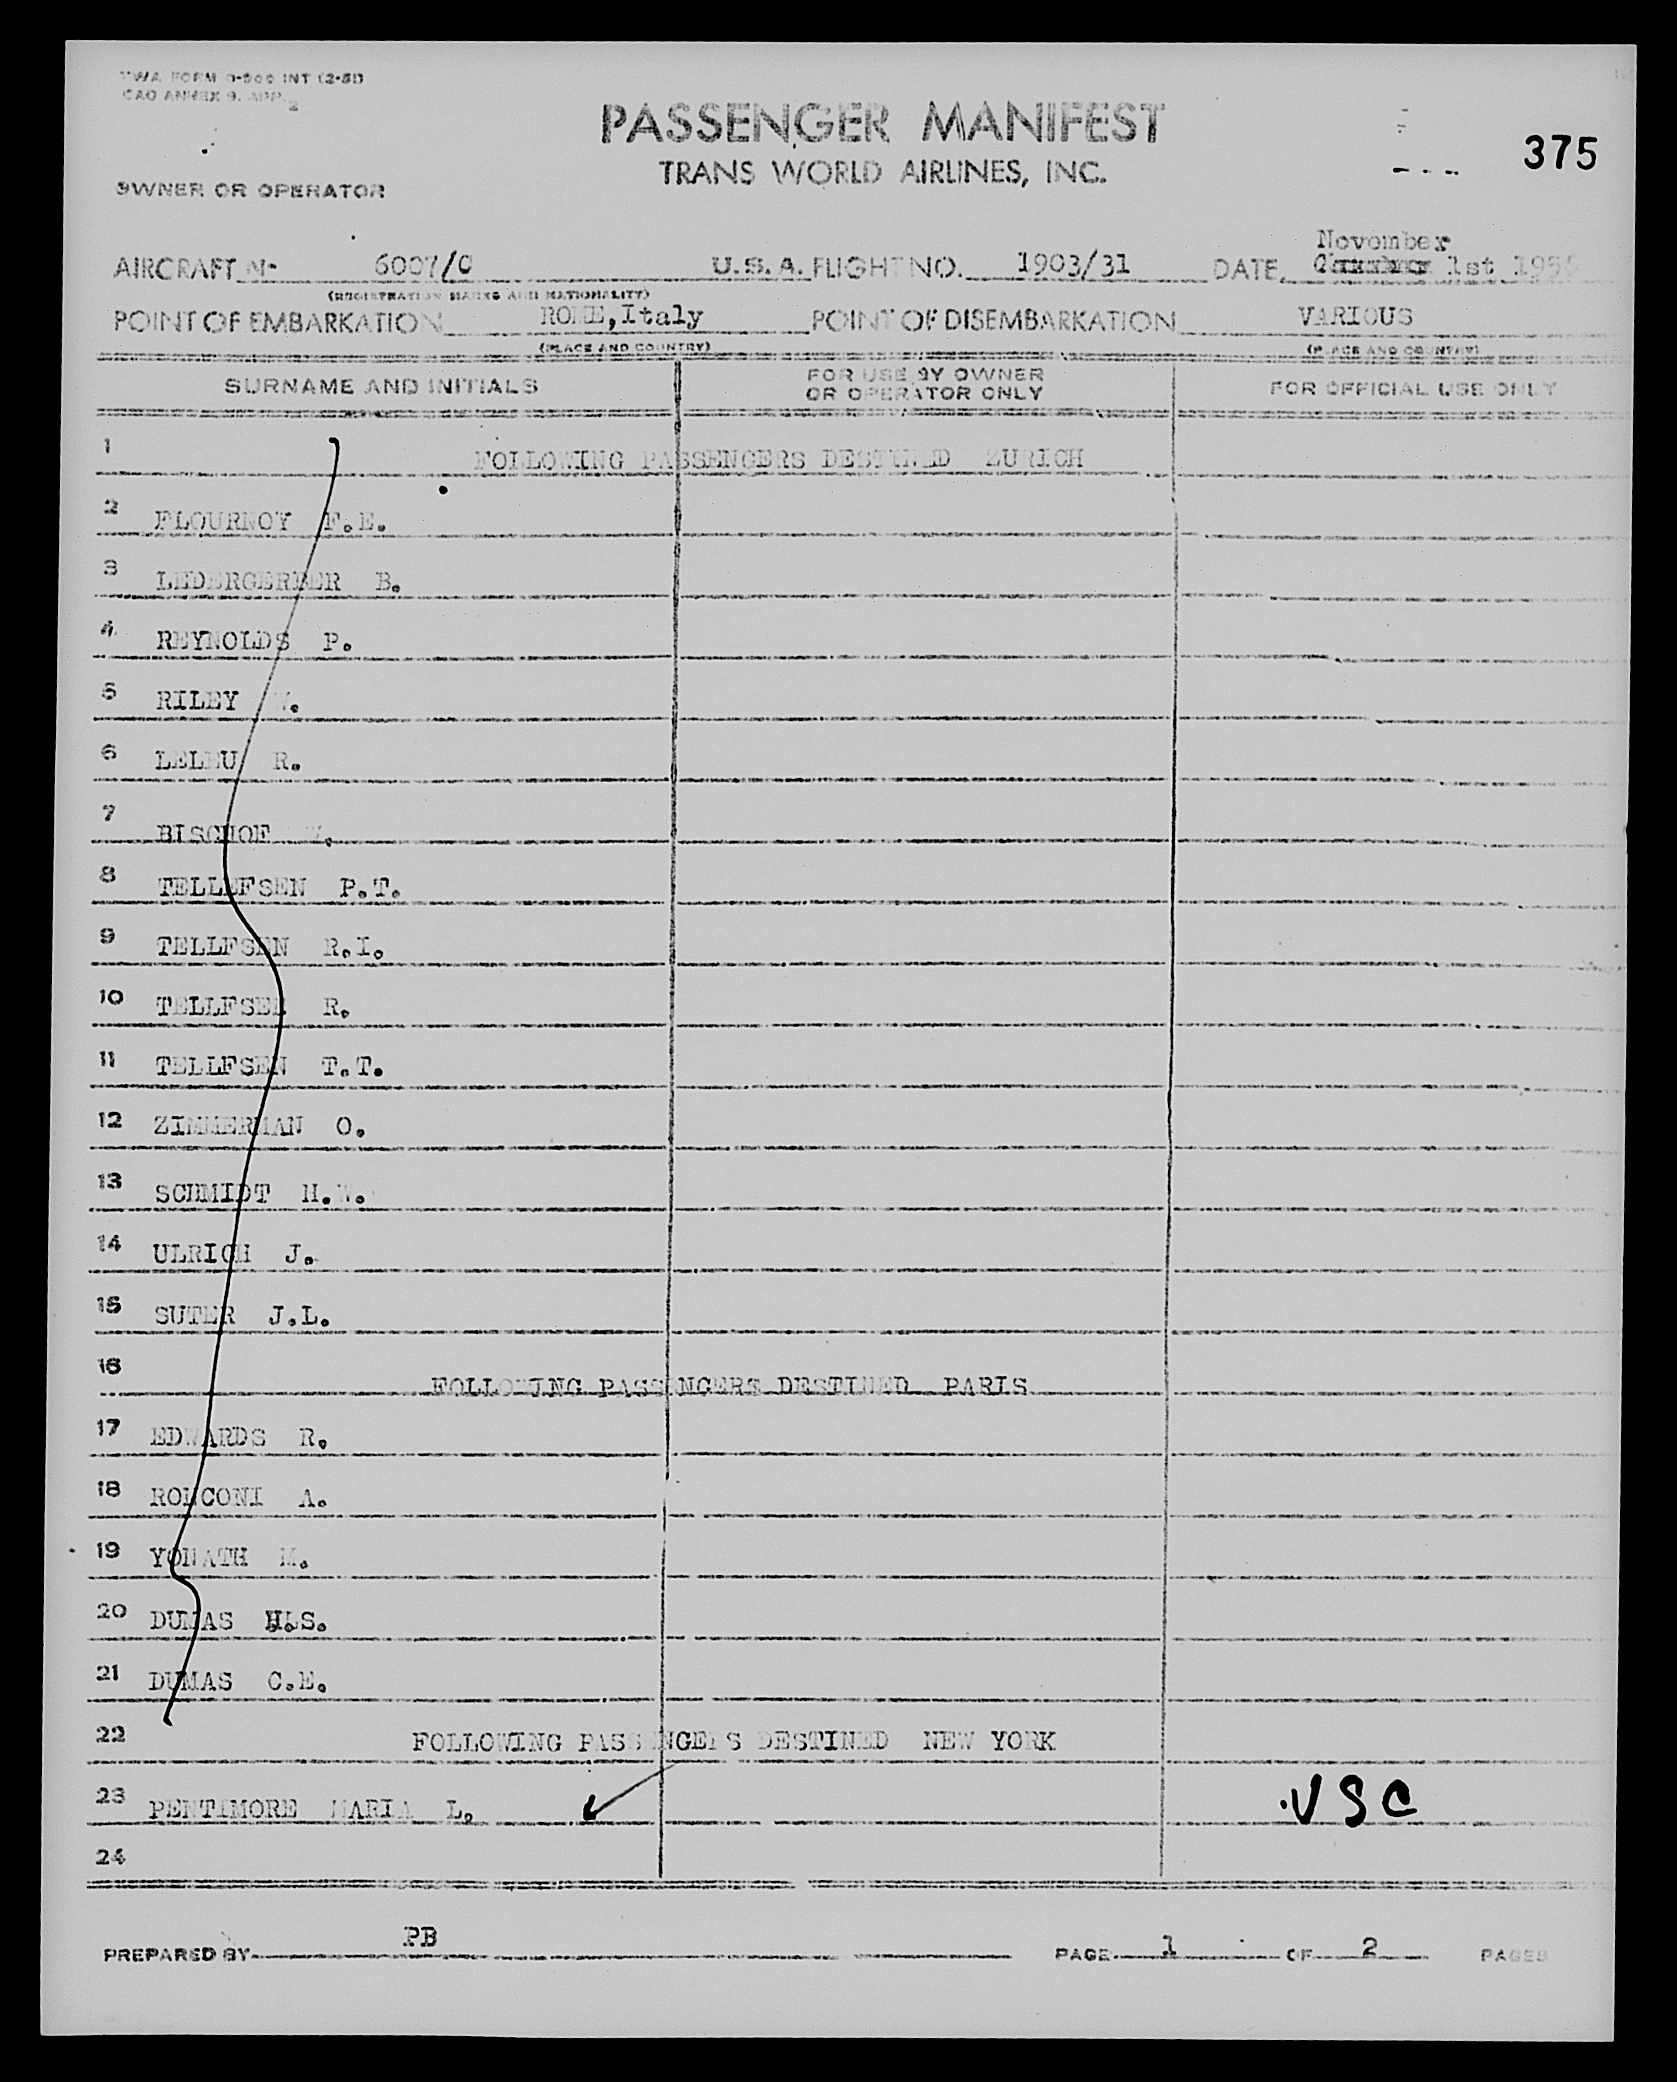 TWA FORM 0-500 INT (2-51)
CAO ANNEX 9. APP. 2
PASSENGER MANIFEST
375
TRANS WORLD AIRLINES, INC.
OWNER OR OPERATOR
November
AIRCRAFT No 6007/C U.S.A. FLIGHT NO. 1903/31 DATE 1st
(REGISTRATION MARKS AND NATIONALITY)
POINT OF EMBARKATION ROME,Italy POINT OF DISEMBARKATION VARIOUS
(PLACE AND COUNTRY) (PLACE AND COUNTRY)
SURNAME AND INITIALS FOR USE BY OWNER OR OPERATOR ONLY FOR OFFICIAL USE ONLY
1 FOLLOWING PASSENGERS DESTINED ZURICH
2 FLOURNOY F.E.
3 LEDERGERBER B.
4 REYNOLDS P.
5 RILEY W.
6 LELEU R.
7 BISCHOF W.
8 TELLEFSEN P.T.
9 TELLFSEN R.I.
10 TELLFSEN R.
11 TELLFSEN T.T.
12 ZIMMERMAN O.
13 SCHMIDT H.W.
14 ULRICH J.
15 SUTER J.L.
16 FOLLOWING PASSENGERS DESTINED PARIS
17 EDWARDS R.
18 RONCONI A.
19 YONATH M.
20 DUMAS H.S.
21 DUMAS C.E.
22 FOLLOWING PASSENGERS DESTINED NEW YORK
23 PENTIMORE MARIA L. USC
24
PREPARED BY PB PAGE 1 OF 2 PAGES